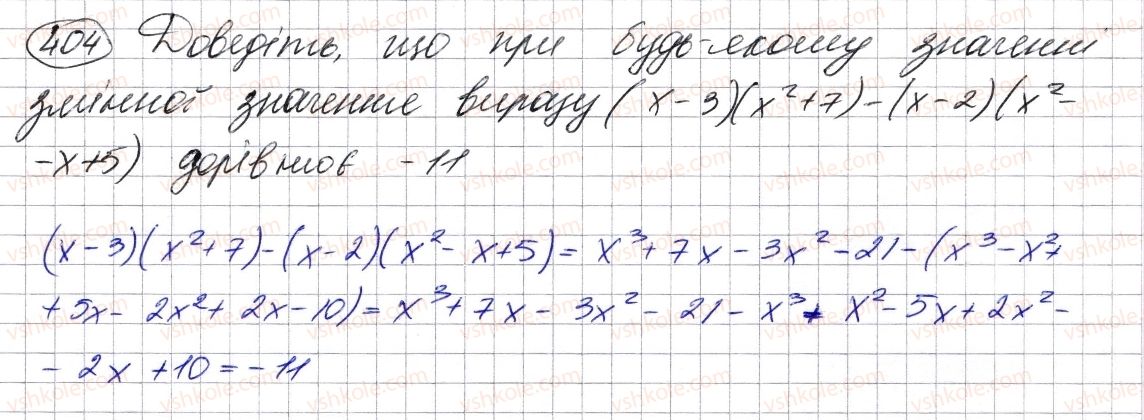 404 Доведіть, що при будь-якому значенні
змінної значення виразу (x-3)(x²+7)-(x-2)(x²-
-x+5) дорівнює -11
(x-3)(x²+7)-(x-2)(x²-x+5)=x³+7x-3x²-21-(x³-x²+
+5x-2x²+2x-10)=x³+7x-3x²-21-x³+x²-5x+2x²-
-2x+10=-11